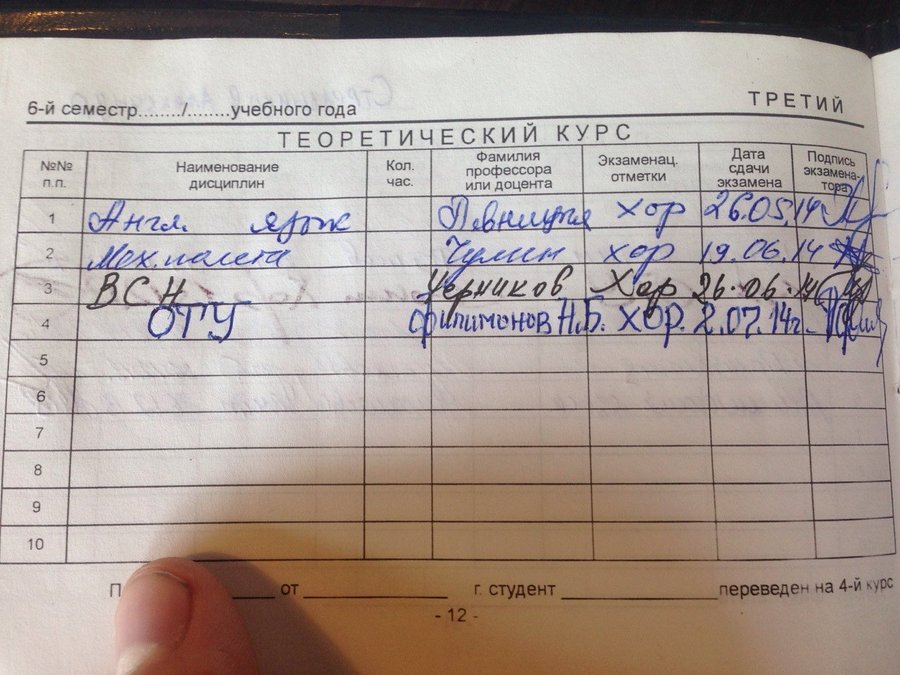 6-й семестр......../........учебного года ТРЕТИЙ
ТЕОРЕТИЧЕСКИЙ КУРС
№№ п.п. Наименование дисциплин Кол. час. Фамилия профессора или доцента Экзаменац. отметки Дата сдачи экзамена Подпись экзамена-тора
1 Англ. язык Певницкая хор 26.05.14
2 Мех. полета Чулин хор 19.06.14
3 ВСН Черников Хор 26.06.14
4 ОТУ Филимонов Н.Б. ХОР. 2.07.14г.
5
6
7
8
9
10
П от г. студент переведен на 4-й курс
- 12 -